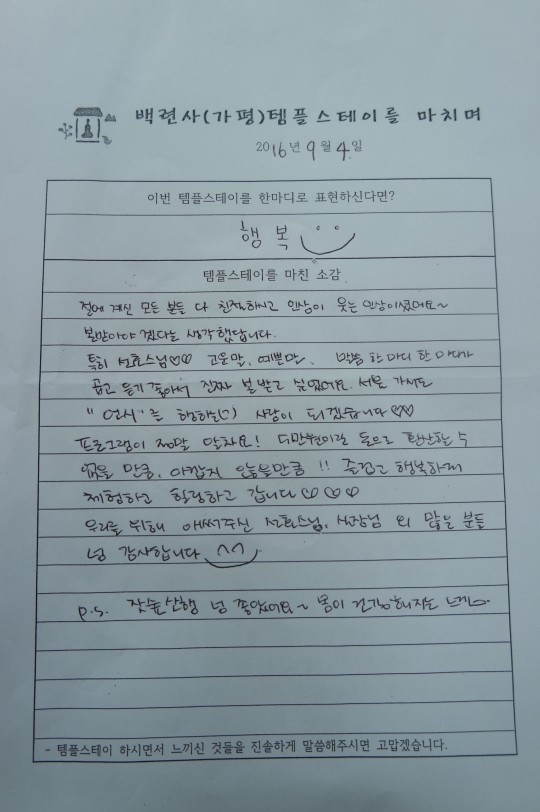 백련사(가평)템플스테이를 마치며
2016년 9월 4일
이번 템플스테이를 한마디로 표현하신다면?
행복
템플스테이를 마친 소감
절에 계신 모든 분들 다 친절하시고 인상이 웃는 인상이셨어요~
본받아야 겠다는 생각했답니다.
특히 선효스님♡♡ 고운말, 예쁜말, 말씀 한 마디 한 마디가
곱고 듣기 좋아서 진짜 본 받고 싶었어요. 서울 가서도
"언시"를 행하는 사람이 되겠습니다 ♡♡
프로그램이 정말 알차요! 이만원이로 돈으로 환산할 수
없을 만큼, 아깝지 않을만큼!! 즐겁고 행복하게
체험하고 힐링하고 갑니다 ♡♡♡
우리를 위해 애써주신 선효스님, 실장님 외 많은 분들
넘 감사합니다
p.s. 잣숲산행 넘 좋았어요~ 몸이 건강해지는 느낌~
- 템플스테이 하시면서 느끼신 것들을 진솔하게 말씀해주시면 고맙겠습니다.